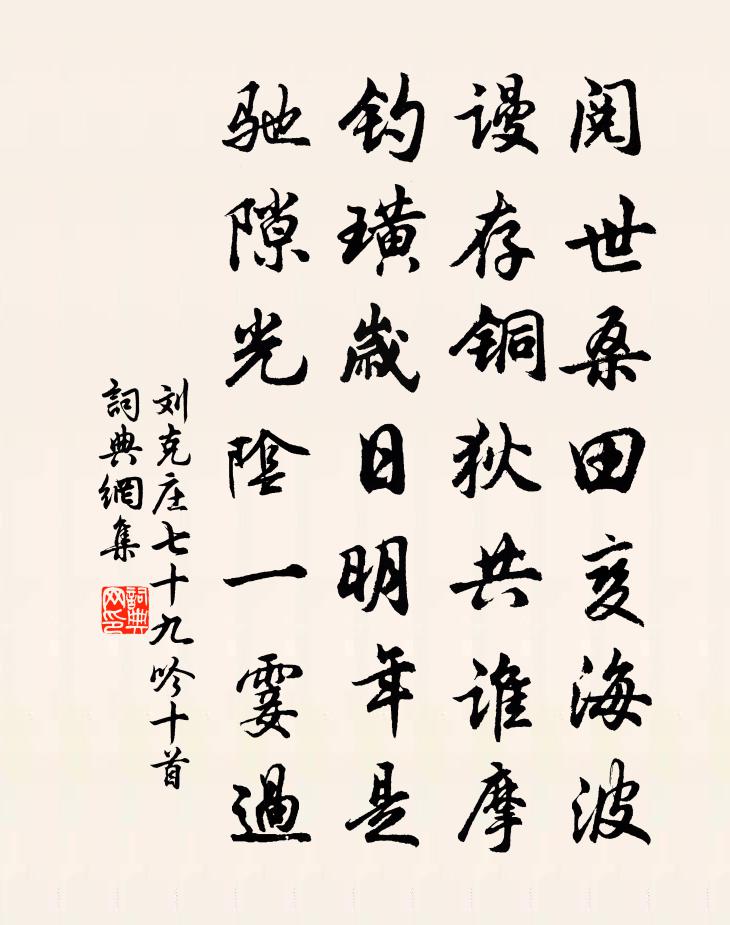 阅世桑田变海波
谩存铜狄共谁摩
钓璜岁日明年是
驰隙光阴一霎過
刘克庄七十九吟十首
詞典網集
詞典网印